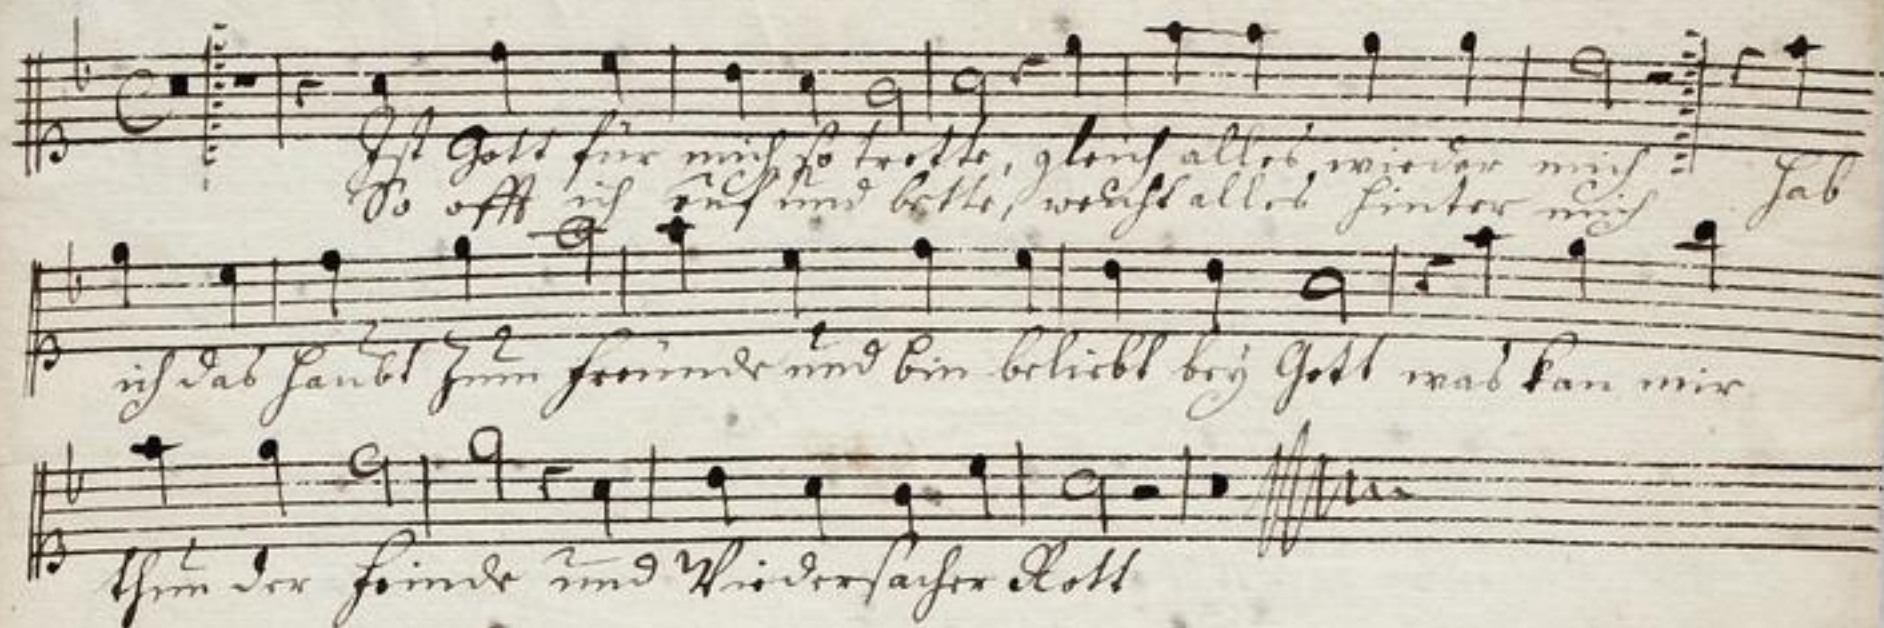 Ist Gott für mich, so trette, gleich alles wieder mich
So offt ich ruf und bette, weicht alles hinter mich Hab
ich das Haubt zum Freunde und bin beliebt bey Gott was kan mir
thun der Feinde und Wiedersacher Rott